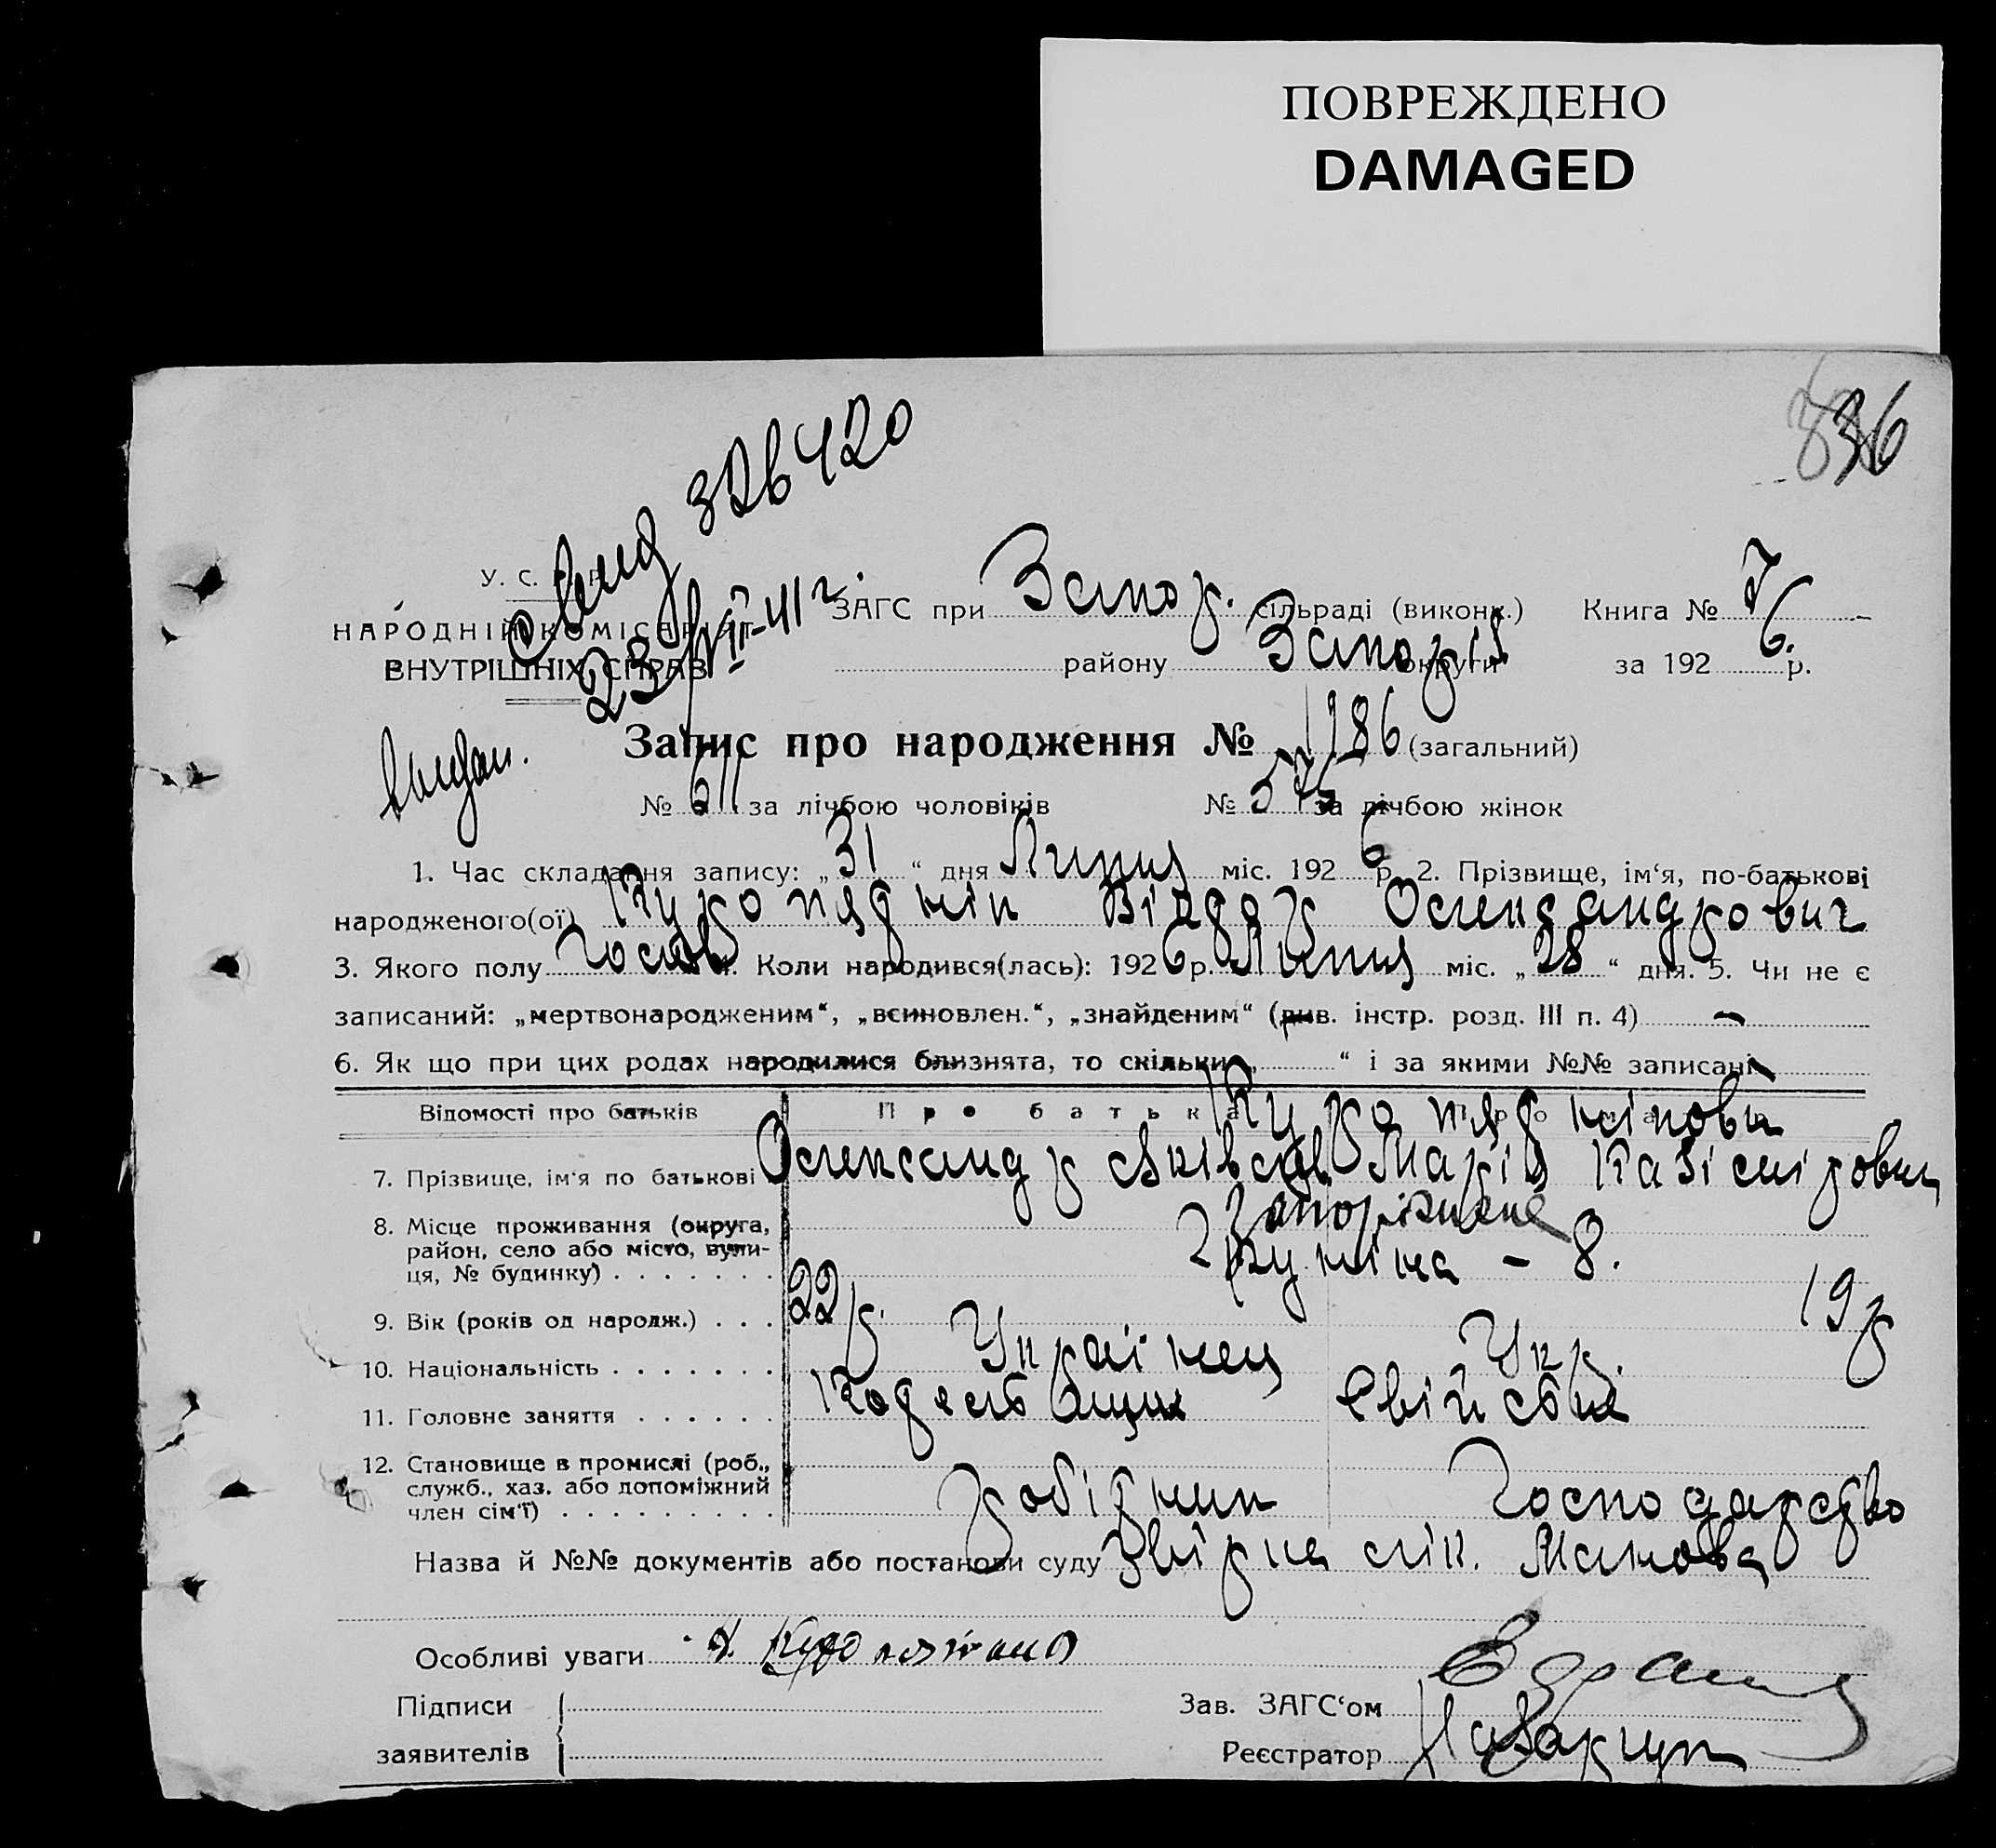 ПОВРЕЖДЕНО
DAMAGED
36
326420
У. С.
ЗАГС при Запор. сільраді (викон.) Книга № 7
НАРОДНІЙ КОМІСАРІЯТ
ВНУТРІШНІХ СПРАВ
23/VII-41 г.
району Запоріз округи за 1926 р.
выдан.
Запис про народження № 1186 (загальний)
№ 611 за лічбою чоловіків № 575 за лічбою жінок
1. Час складання запису: „31“ дня Липня міс. 1926 р. 2. Прізвище, ім‘я, по-батькові
народженого(ої) Куропядник Віктор Олександрович
3. Якого полу Коли народився(лась): 1926 р. Липня міс. „28“ дня. 5. Чи не є
записаний: „мертвонародженим“, „всиновлен.“, „знайденим“ (див. інстр. розд. III п. 4) —
6. Як що при цих родах народилися близнята, то скільки „ “ і за якими №№ записані —
Відомості про батьків Про батька
Куропядникови
7. Прізвище, ім‘я по батькові Олександр Яківов Марія Казіміровна
8. Місце проживання (округа,
район, село або місто, вули-
ця, № будинку)
Запоріжжє
– 8.
9. Вік (років од народж.) 22 р. 19 р
10. Національність Українец Укр.
11. Головне заняття Свійське
12. Становище в промислі (роб.,
служб., хаз. або допоміжний
член сім‘ї)
робітник Господарство
Назва й №№ документів або постанови суду Звірка лік.
Особливі уваги
Підписи
заявителів
Зав. ЗАГС‘ом
Реєстратор